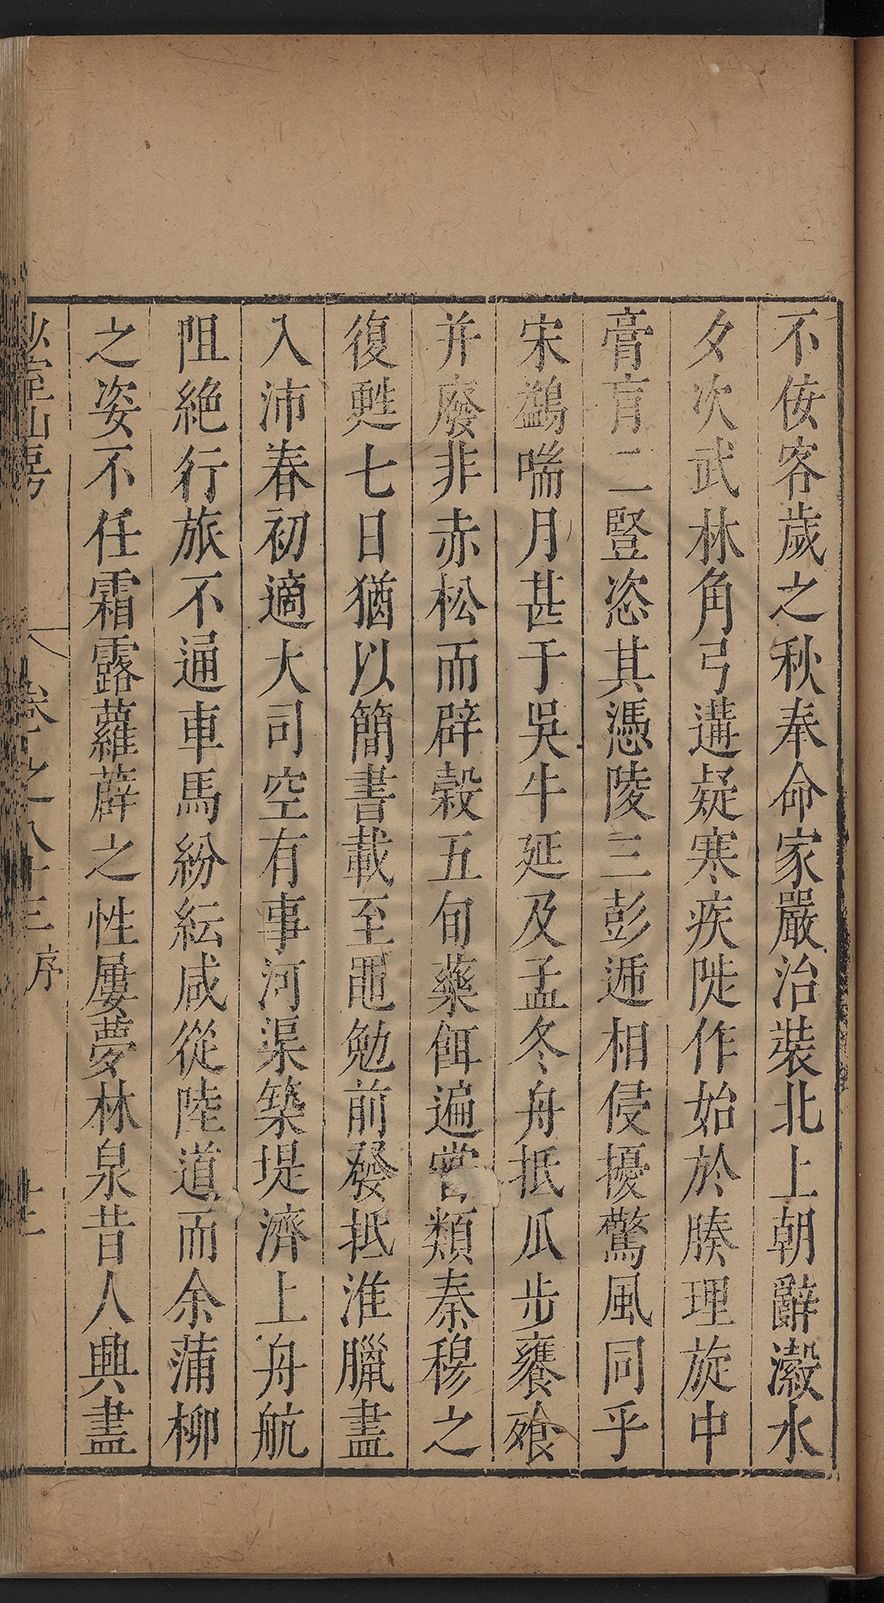 不佞客歲之秋奉命家嚴治裝北上朝辭瀫水
夕次武林角弓遘疑寒疾陡作始於腠理旋中
膏肓二豎恣其憑陵三彭遞相侵擾驚風同乎
宋鷁喘月甚于吳牛延及孟冬舟抵瓜步饔飱
并廢非赤松而辟穀五旬藥餌遍嘗類秦穆之
復甦七日猶以簡書載至黽勉前發抵淮臘盡
入沛春初適大司空有事河渠築堤濟上舟航
阻絶行旅不通車馬紛紜咸從陸道而余蒲柳
之姿不任霜露蘿薜之性屢夢林泉昔人興盡
少室山房
卷之八十三 序